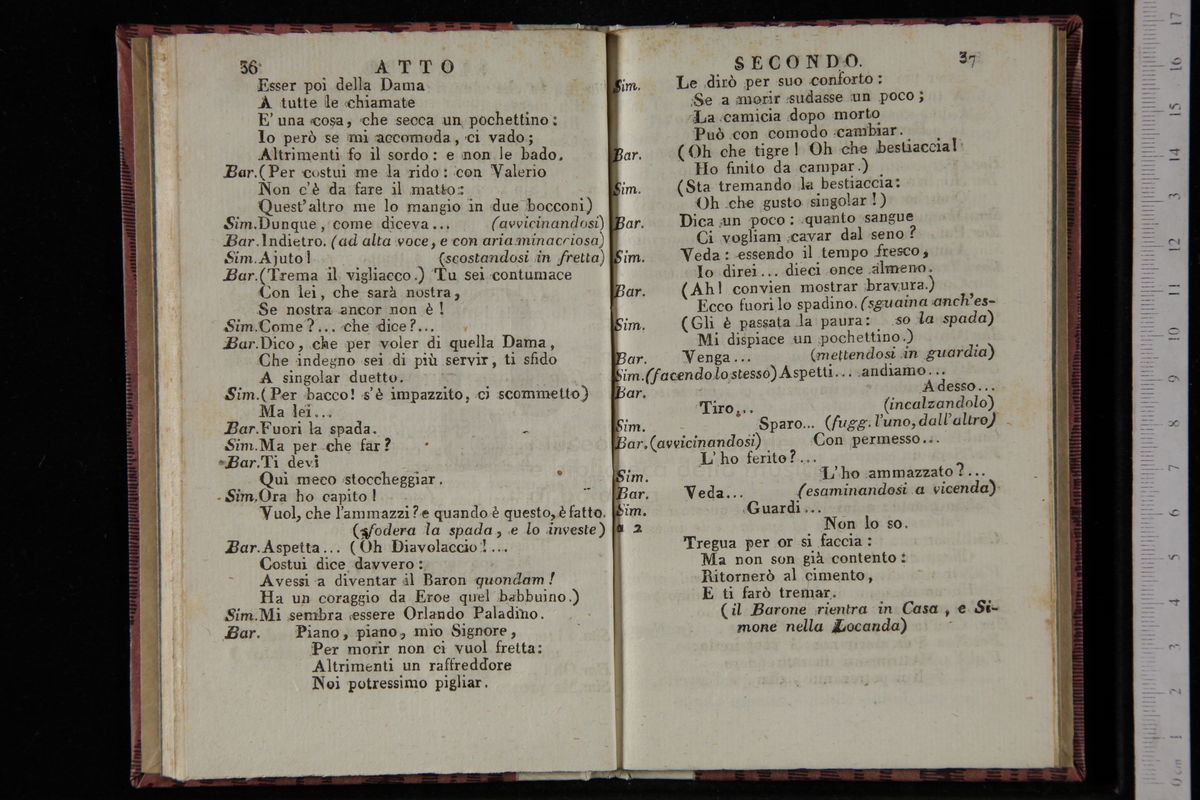 36 ATTO
Esser poi della Dama
A tutte le chiamate
E' una cosa, che secca un pochettino:
Io però se mi accomoda, ci vado;
Altrimenti fo il sordo: e non le bado.
Bar.(Per costui me la rido: con Valerio
Non c'è da fare il matto:
Quest'altro me lo mangio in due bocconi)
Sim.Dunque, come diceva... (avvicinandosi)
Bar.Indietro. (ad alta voce, e con aria minacciosa)
Sim.Ajuto! (scostandosi in fretta)
Bar.(Trema il vigliacco.) Tu sei contumace
Con lei, che sarà nostra,
Se nostra ancor non è!
Sim.Come?... che dice?...
Bar.Dico, che per voler di quella Dama,
Che indegno sei di più servir, ti sfido
A singolar duetto.
Sim.(Per bacco! s'è impazzito, ci scommetto)
Ma lei...
Bar.Fuori la spada.
Sim.Ma per che far?
Bar.Ti devi
Qui meco stoccheggiar.
Sim.Ora ho capito!
Vuol, che l'ammazzi? e quando è questo, è fatto.
(sfodera la spada, e lo investe)
Bar.Aspetta... (Oh Diavolaccio!...
Costui dice davvero:
Avessi a diventar il Baron quondam!
Ha un coraggio da Eroe quel babbuino.)
Sim.Mi sembra essere Orlando Paladino.
Bar. Piano, piano, mio Signore,
Per morir non ci vuol fretta:
Altrimenti un raffreddore
Noi potressimo pigliar.
SECONDO. 37
Sim. Le dirò per suo conforto:
Se a morir sudasse un poco;
La camicia dopo morto
Può con comodo cambiar.
Bar. (Oh che tigre! Oh che bestiaccia!
Ho finito da campar.)
Sim. (Sta tremando la bestiaccia:
Oh che gusto singolar!)
Bar. Dica un poco: quanto sangue
Ci vogliam cavar dal seno?
Sim. Veda: essendo il tempo fresco,
Io direi... dieci once almeno.
Bar. (Ah! convien mostrar bravura.)
Ecco fuori lo spadino. (sguaina anch'es-
Sim. (Gli è passata la paura: so la spada)
Mi dispiace un pochettino.)
Bar. Venga... (mettendosi in guardia)
Sim.(facendo lo stesso) Aspetti... andiamo...
Bar. Adesso...
Tiro... (incalzandolo)
Sim. Sparo... (fugg. l'uno, dall'altro)
Bar.(avvicinandosi) Con permesso...
L'ho ferito?...
Sim. L'ho ammazzato?...
Bar. Veda... (esaminandosi a vicenda)
Sim. Guardi...
a 2 Non lo so.
Tregua per or si faccia:
Ma non son già contento:
Ritornerò al cimento,
E ti farò tremar.
(il Barone rientra in Casa, e Si-
mone nella Locanda)
0 cm 1 2 3 4 5 6 7 8 9 10 11 12 13 14 15 16 17